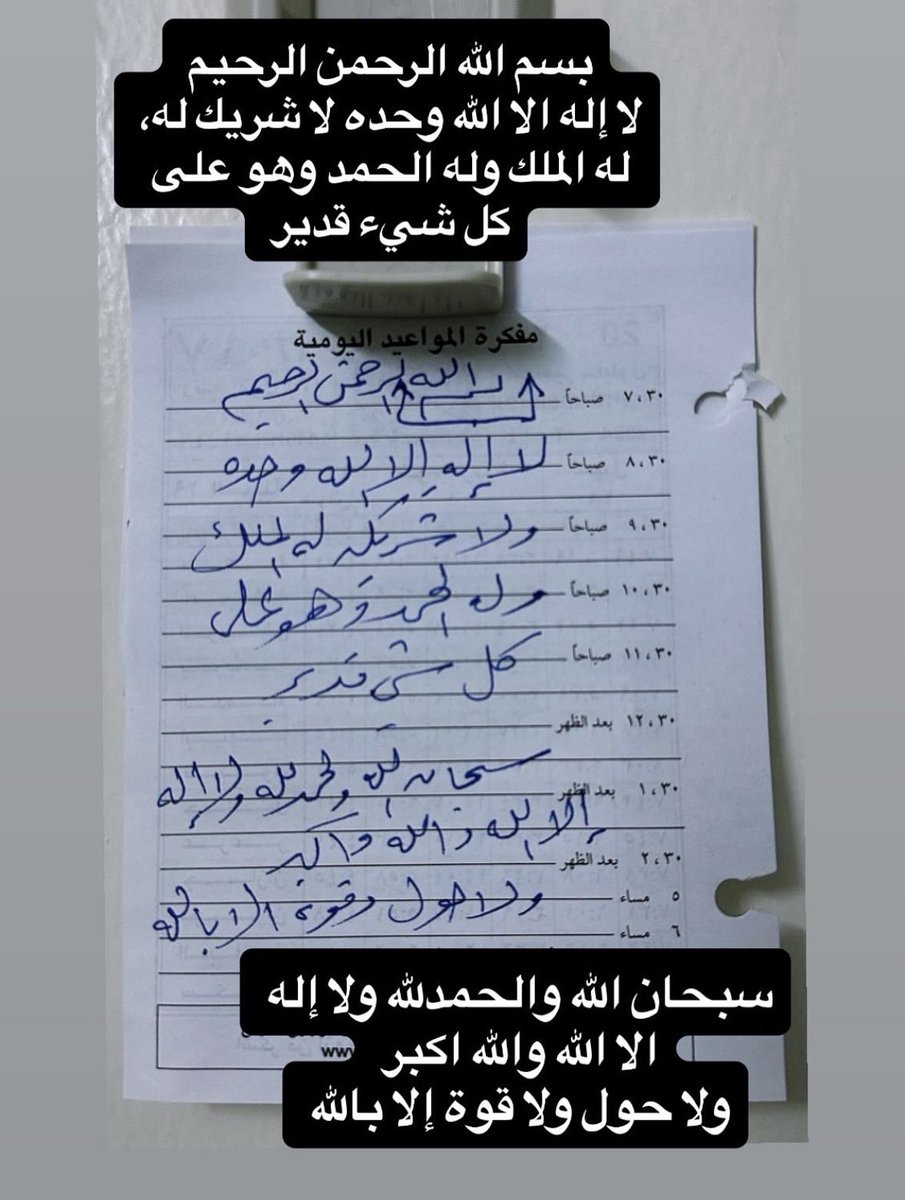 بسم الله الرحمن الرحيم
لا إله الا الله وحده لا شريك له،
له الملك وله الحمد وهو على
كل شيء قدير
مفكرة المواعيد اليومية
٧،٣٠ صباحاً بسم الله الرحمن الرحيم
٨،٣٠ صباحاً لا إله إلا الله وحده
٩،٣٠ صباحاً ولا شريك له الملك
١٠،٣٠ صباحاً وله الحمد وهو على
١١،٣٠ صباحاً كل شي قدير
١٢،٣٠ بعد الظهر
١،٣٠ بعد الظهر سبحان الله والحمد لله ولا إله
إلا الله والله واكبر
٢،٣٠ بعد الظهر
٥ مساء ولا حول وقوة الا بالله
٦ مساء
سبحان الله والحمدلله ولا إله
الا الله والله اكبر
ولا حول ولا قوة إلا بالله
www